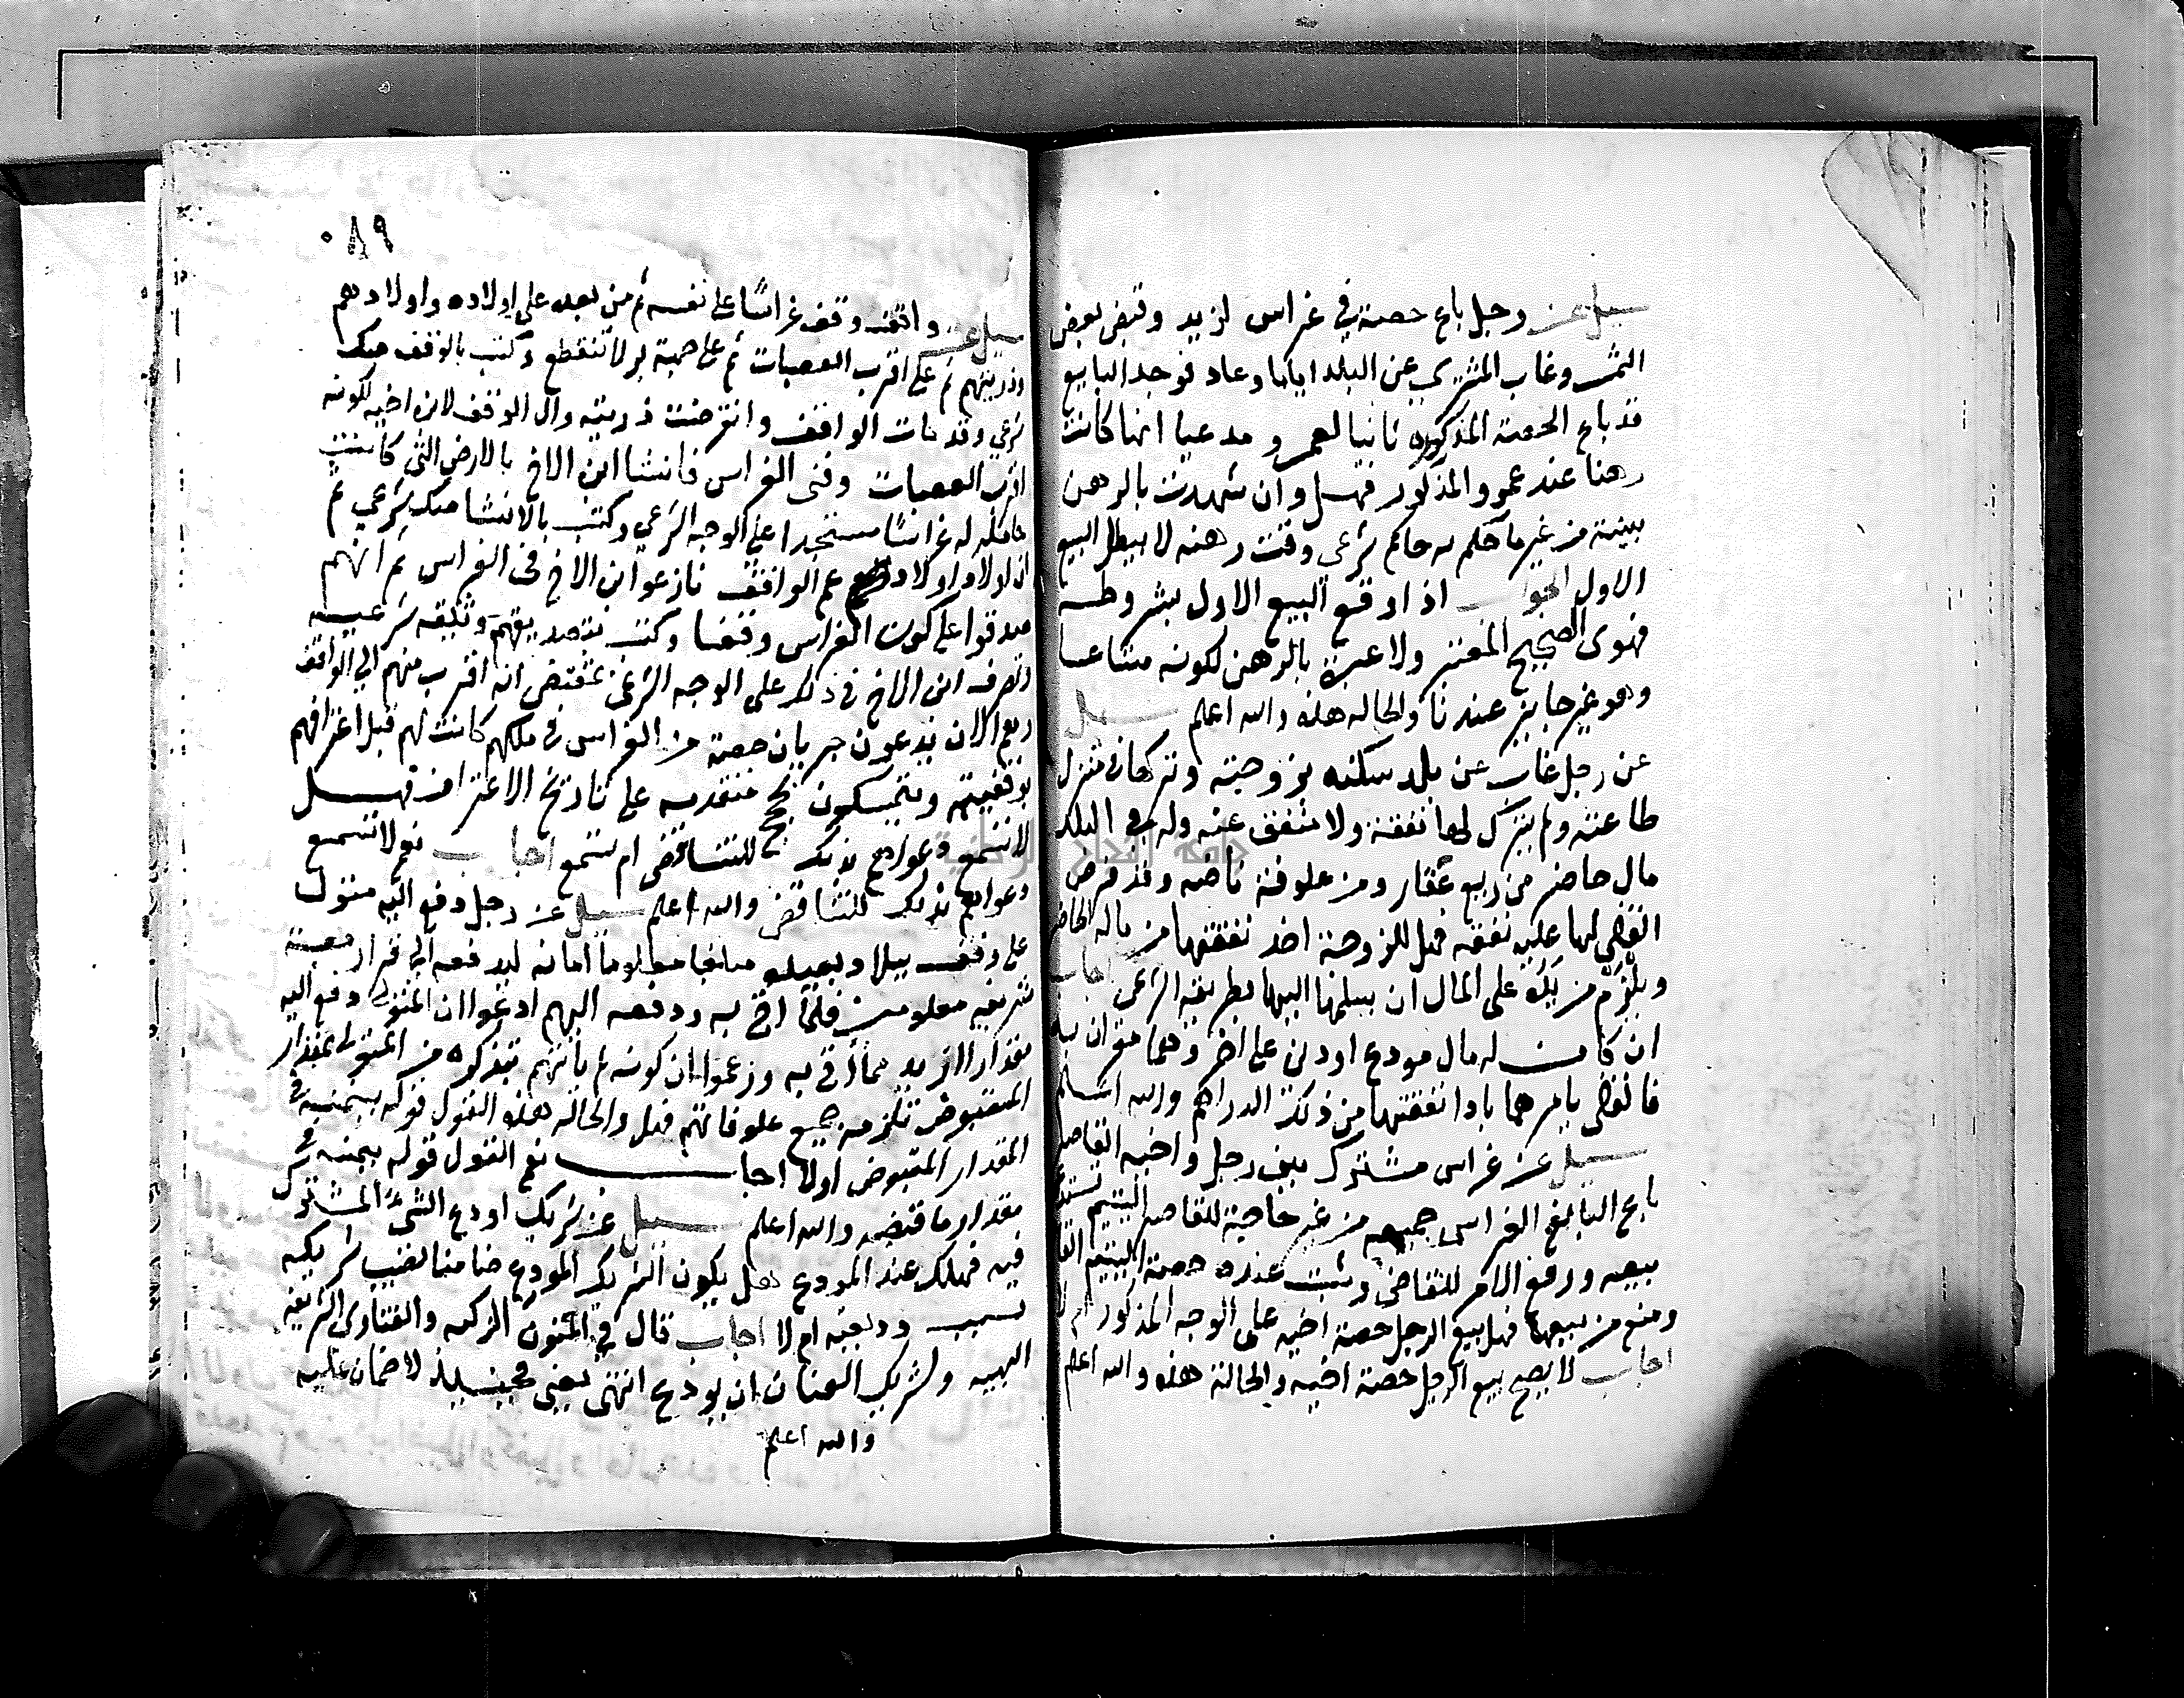 سيل عن رجل باع حصته في غراس لزيد وقبض بعض
الثمن وغاب المشتري عن البلد اياما وعاد فوجد البايع
قد باع الحصة المذكوره ثانيا لعمرو مدعيا انها كانت
رهنا عند عمرو المذكور فهل وان شهدت بالرهن
بينة من غير ما حكم به حاكم شرعي وقت رهنه لا يبطل البيع
الاول الجواب اذا وقع البيع الاول بشروطه
فهو الصحيح المعتبر ولا عبرة بالرهن لكونه مشاعا
وهو غير جايز عندنا والحاله هذه والله اعلم سيل
عن رجل غاب عن بلد سكنه بزوجته وتركها في منزل
طاعته ولم يترك لها نفقة ولا منفق عنه وله في البلد
مال حاضر من ريع عقار ومن علوفة ناضه وقد فرض
القاضي لها عليه نفقه فهل للزوجة اخذ نفقتها من ماله الحاضر
ويلزم من يده على المال ان يسلمها اليها بطريقه الشرعي اجاب
ان كان له مال مودع او دين على اخر وهما مقران به
فالقاضي يامرهما باداء نفقتها من ذلك الدراهم والله اعلم
سيل عن غراس مشترك بين رجل واخيه القاصر
باع البالغ الغراس جميعه من غير حاجة للقاصر اليتيم
ببيعه ورفع الامر للقاضي وثبت عنده حصة اليتيم
ومنع من بيعها فهل بيع الرجل حصة اخيه على الوجه المذكور ام لا
اجاب لا يصح بيع الرجل حصة اخيه والحالة هذه والله اعلم
٠٨٩
سيل عن واقف وقف غراسا على نفسه ثم من بعده على اولاده واولادهم
وذريتهم ثم على اقرب العصبات ثم على جهة بر لا تنقطع وكتب بالوقف صك
شرعي وقد مات الواقف وانقرضت ذريته وال الوقف لابن اخيه لكونه
اقرب العصبات وفنى الغراس فانشا ابن الاخ بالارض التي كانت
حاملة له غراسا مستجدا على الوجه الشرعي وكتب بالانشا صك شرعي ثم
ان اولاد اولاد عم الواقف نازعوا ابن الاخ في الغراس ثم انهم
صدقوا على كون الغراس وقفا وكتب بتصديقهم وثيقه شرعيه
وتصرف ابن الاخ في ذلك على الوجه الشرعي بمقتضى انه اقرب منهم الي الواقف
وهم الان يدعون جريان حصة من الغراس في ملكهم كانت لهم قبل اعترافهم
بوقفيته ويتمسكون بحجج متقدمه على تاريخ الاعتراف فهل
لا تسمع دعواهم بذلك للتناقض ام تسمع اجاب نعم لا تسمع
دعواهم بذلك للتناقض والله اعلم سيل عن رجل دفع اليه متولي
على وقف مبلغا معلوما امانه ليدفعه الى قرار معينة
شريفيه معلومين فلما اتى به ودفعه اليهم ادعوا ان المتولي دفع اليه
مقدارا ازيد مما اتى به وزعموا ان كونه لم ياتهم بتذكره من المتولي بمقدار
المقبوض تلزمه جميع علوفاتهم فهل والحاله هذه القول قوله بيمينه في
المقدار المقبوض اولا اجاب نعم القول قوله بيمينه في
مقدار ما قبضه والله اعلم سيل عن شريك اودع الشيء المشترك
فيه فهلك عند المودع هل يكون الشريك المودع ضامنا نصيب شريكه
بسبب وديعته ام لا اجاب قال في المتون الزكيه والفتاوى الشريفه
البهيه ولشريك العنان ان يودع انتهى يعني فحينيذ لا ضمان عليه
والله اعلم